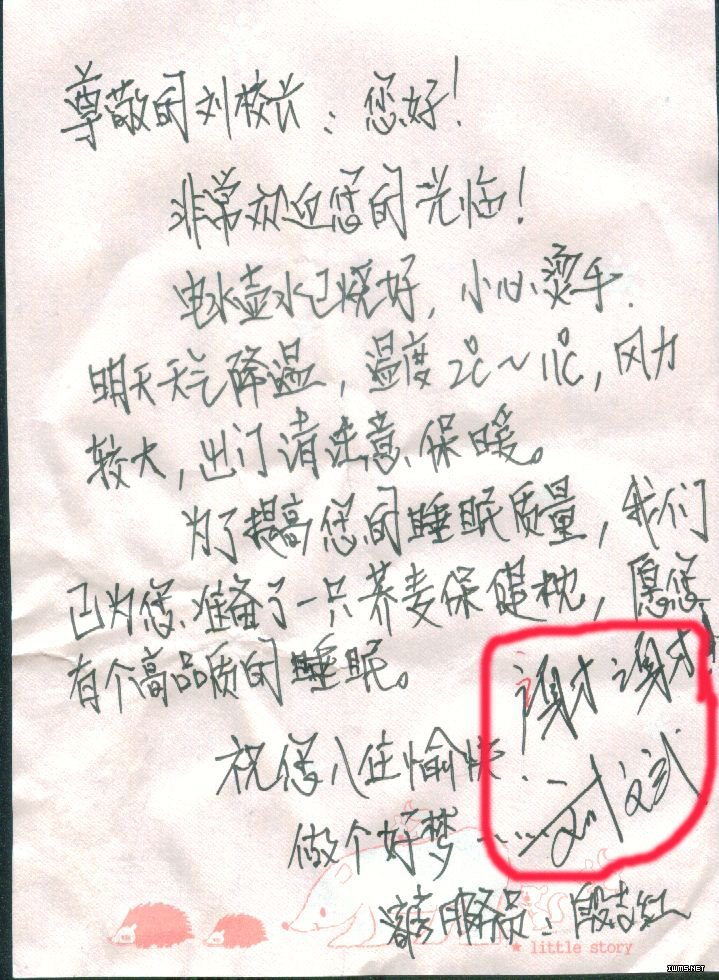 尊敬的刘校长：您好！
非常欢迎您的光临！
电水壶水已烧好，小心烫手.
明天天气降温，温度2℃～11℃，风力
较大，出门请注意保暖。
为了提高您的睡眠质量，我们
已为您准备了一只荞麦保健枕，愿您
有个高品质的睡眠。
谢谢!
祝您入住愉快.
刘文武
做个好梦……
服务员：段志红
★ little story
IWMS.NET